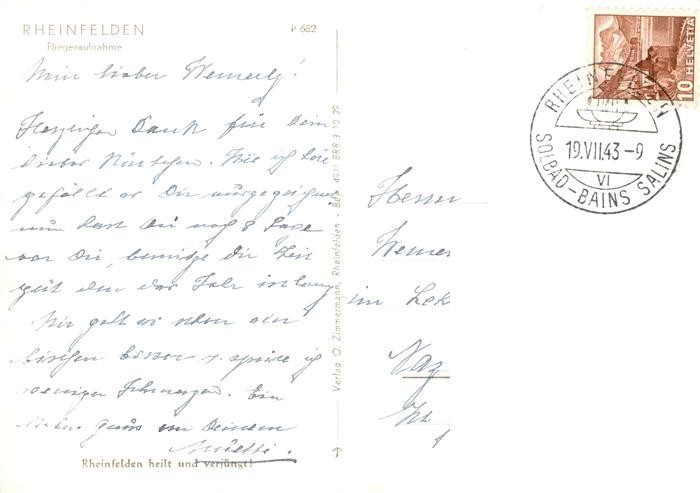 RHEINFELDEN
Fliegeraufnahme
P 682
Mein lieber Wernerly!
Herzigen Dank für Dein
liebes Kärtchen. Wie ich lese
gefällt es Dir ausgezeichnet
nun hast Du noch 8 Tage
vor Dir, benütze die Zeit
gut denn das Jahr ist lang
Mir geht es schon ein
bischen besser u. spüre ich
weniger Schmerzen. Ein
lieber Gruss von Deinem
Muetti.
Rheinfelden heilt und verjüngt!
Verlag O. Zimmermann, Rheinfelden - Bew. 4911 BRB 3.10.39
Herrn
Werner
im
HELVETIA
10
RHEINFELDEN
19.VII.43-9
VI
SOLBAD-BAINS SALINS